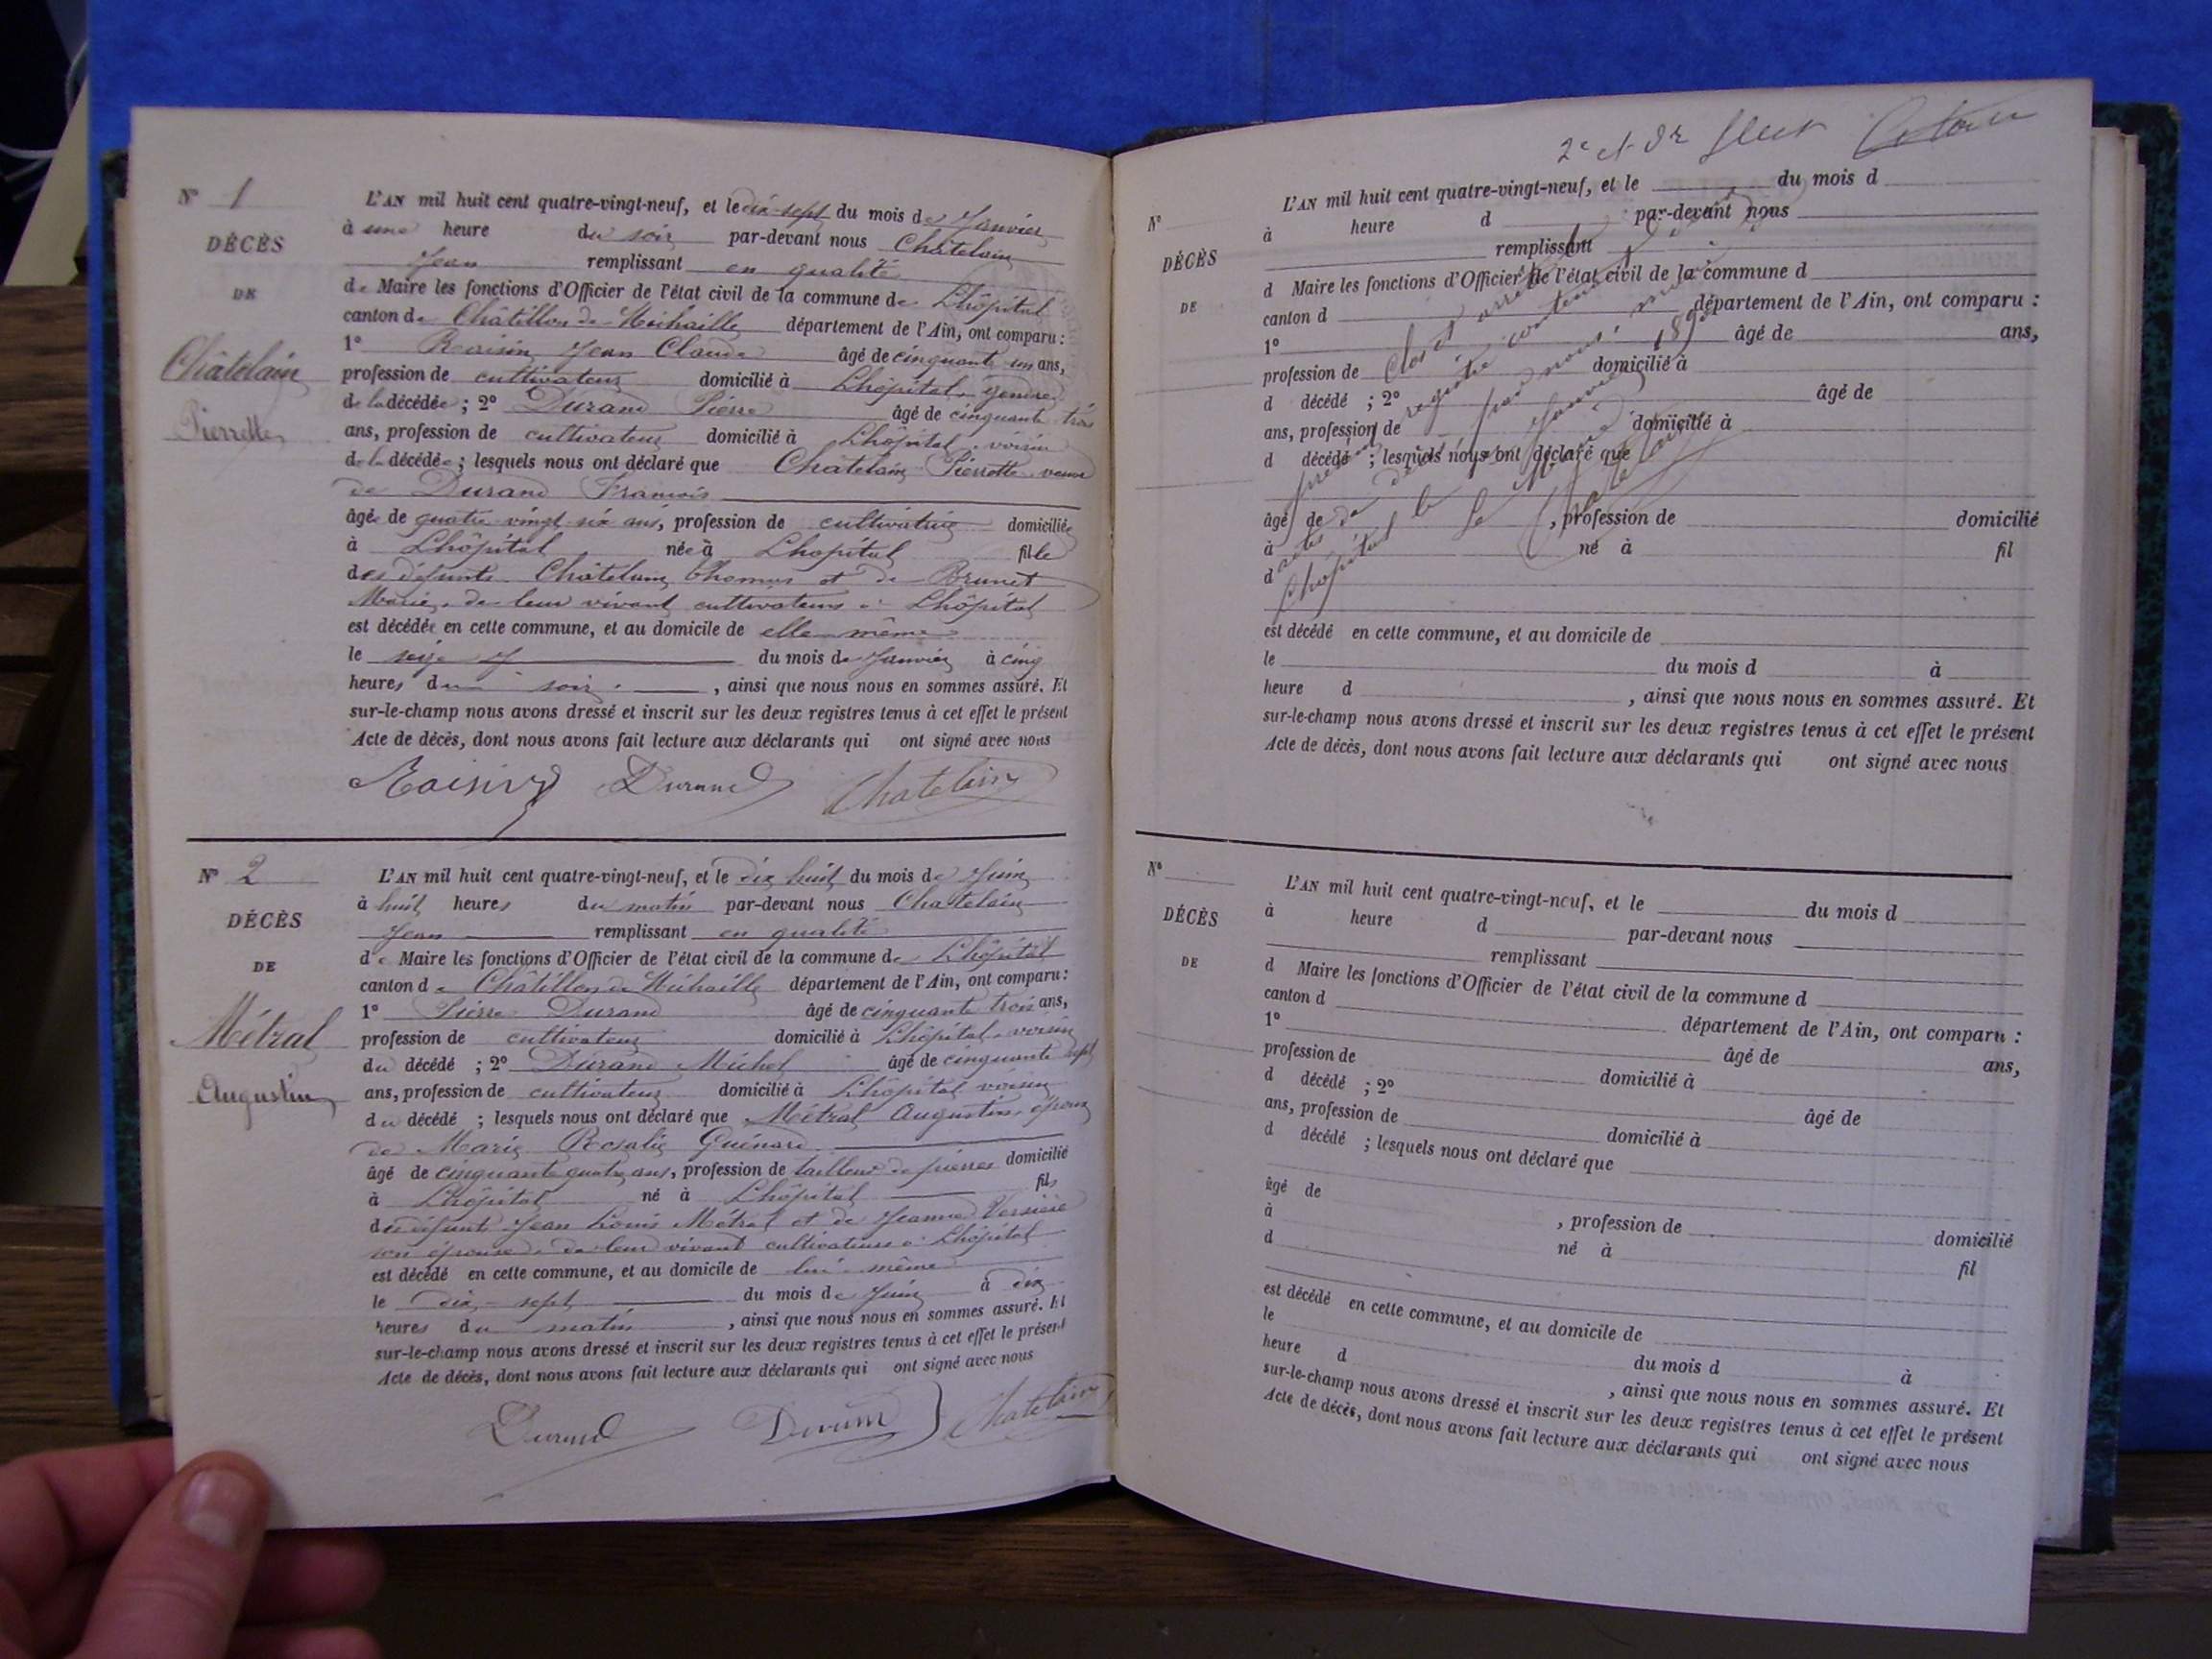 N° 1
DÉCÈS
DE
Châtelain
Pierrette
L'AN mil huit cent quatre-vingt-neuf, et le dix-sept du mois de Janvier
à une heure du soir par-devant nous Châtelain
Jean remplissant en qualité
de Maire les fonctions d'Officier de l'état civil de la commune de Lhôpital
canton de Châtillon de Michaille département de l'Ain, ont comparu :
1° Raisin Jean Claude âgé de cinquante un ans,
profession de cultivateur domicilié à Lhôpital, gendre
de la décédée ; 2° Durand Pierre âgé de cinquante trois
ans, profession de cultivateur domicilié à Lhôpital voisin
de la décédée ; lesquels nous ont déclaré que Châtelain Pierrette veuve
de Durand François
âgée de quatre vingt six ans, profession de cultivatrice domiciliée
à Lhôpital née à Lhopital fille
des défunts Châtelain Thomas et de Brunet
Marie, de leur vivant cultivateurs à Lhôpital
est décédée en cette commune, et au domicile de elle même
le seize du mois de Janvier à cinq
heures du soir, ainsi que nous nous en sommes assuré. Et
sur-le-champ nous avons dressé et inscrit sur les deux registres tenus à cet effet le présent
Acte de décès, dont nous avons fait lecture aux déclarants qui ont signé avec nous
Raisin Durand Chatelain
N° 2
DÉCÈS
DE
Métral
Augustin
L'AN mil huit cent quatre-vingt-neuf, et le dix huit du mois de Juin
à huit heures du matin par-devant nous Chatelain
Jean remplissant en qualité
de Maire les fonctions d'Officier de l'état civil de la commune de Lhôpital
canton de Châtillon de Michaille département de l'Ain, ont comparu :
1° Pierre Durand âgé de cinquante trois ans,
profession de cultivateur domicilié à Lhôpital, voisin
du décédé ; 2° Durand Michel âgé de cinquante sept
ans, profession de cultivateur domicilié à Lhôpital voisin
du décédé ; lesquels nous ont déclaré que Métral Augustin, époux
de Marie Rosalie Guénard
âgé de cinquante quatre ans, profession de tailleur de pierres domicilié
à Lhôpital né à Lhôpital fils
des défunts Jean Louis Métral et de Jeanne
son épouse, de leur vivant cultivateurs à Lhôpital
est décédé en cette commune, et au domicile de lui même
le dix-sept du mois de Juin à dix
heures du matin, ainsi que nous nous en sommes assuré. Et
sur-le-champ nous avons dressé et inscrit sur les deux registres tenus à cet effet le présent
Acte de décès, dont nous avons fait lecture aux déclarants qui ont signé avec nous
Durand Durand Chatelain
2e et
N°
DÉCÈS
DE
L'AN mil huit cent quatre-vingt-neuf, et le du mois d
à heure d par-devant nous
remplissant
d Maire les fonctions d'Officier de l'état civil de la commune d
canton d département de l'Ain, ont comparu :
1° âgé de ans,
profession de domicilié à
d décédé ; 2° âgé de
ans, profession de domicilié à
d décédé ; lesquels nous ont déclaré que
âgé de , profession de domicilié
à né à fil
d
est décédé en cette commune, et au domicile de
le du mois d à
heure d , ainsi que nous nous en sommes assuré. Et
sur-le-champ nous avons dressé et inscrit sur les deux registres tenus à cet effet le présent
Acte de décès, dont nous avons fait lecture aux déclarants qui ont signé avec nous
Clos et arrêté le
présent registre contenant deux
actes de décès par nous, maire
Lhôpital le Janvier 1890
Le Maire
Chatelain
N°
DÉCÈS
DE
L'AN mil huit cent quatre-vingt-neuf, et le du mois d
à heure d par-devant nous
remplissant
d Maire les fonctions d'Officier de l'état civil de la commune d
canton d département de l'Ain, ont comparu :
1° âgé de ans,
profession de domicilié à
d décédé ; 2° âgé de
ans, profession de domicilié à
d décédé ; lesquels nous ont déclaré que
âgé de , profession de domicilié
à né à fil
d
est décédé en cette commune, et au domicile de
le du mois d à
heure d , ainsi que nous nous en sommes assuré. Et
sur-le-champ nous avons dressé et inscrit sur les deux registres tenus à cet effet le présent
Acte de décès, dont nous avons fait lecture aux déclarants qui ont signé avec nous